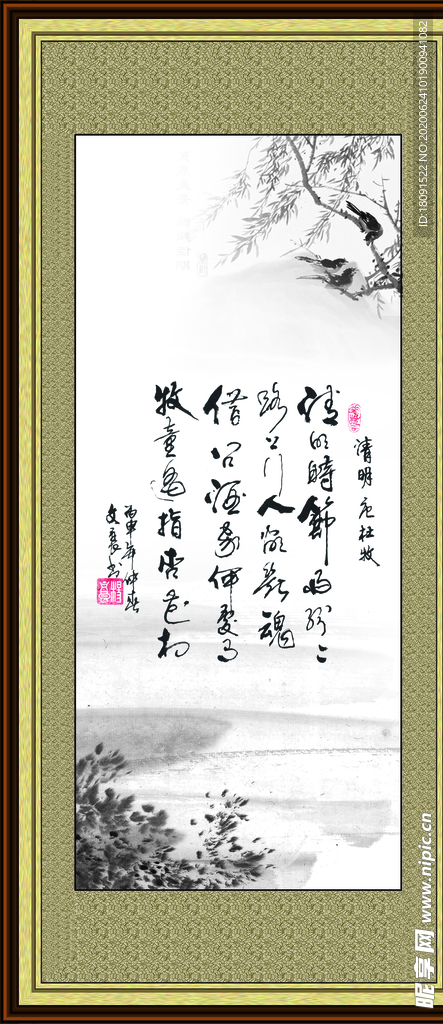 清明 唐 杜牧
清明時節雨紛紛
路上行人欲斷魂
借问酒家何處有
牧童遥指杏花村
丙申年仲春
文表书
ID:18091522 NO:20200624101900941082
昵享网 www.nipic.cn